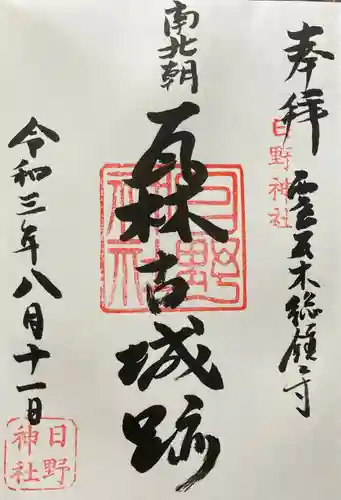 奉拝
日野神社
西宮瓦木総鎮守
南北朝
瓦林古城跡
日野神社
令和三年八月十一日
日野神社